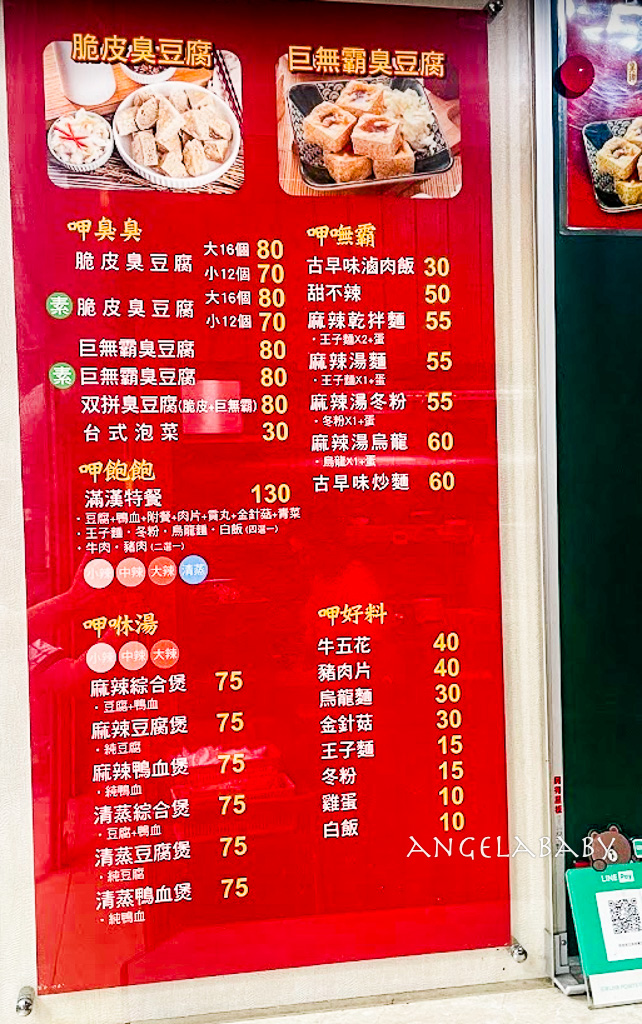 脆皮臭豆腐
巨無霸臭豆腐
呷臭臭
脆皮臭豆腐 大16個 80
小12個 70
素 脆皮臭豆腐 大16個 80
小12個 70
巨無霸臭豆腐 80
素 巨無霸臭豆腐 80
双拼臭豆腐(脆皮+巨無霸) 80
台式泡菜 30
呷飽飽
滿漢特餐 130
·豆腐+鴨血+附餐+肉片+貢丸+金針菇+青菜
·王子麵·冬粉·烏龍麵·白飯(四選一)
·牛肉·豬肉(二選一)
小辣 中辣 大辣 清蒸
呷咻湯
小辣 中辣 大辣
麻辣綜合煲 75
·豆腐+鴨血
麻辣豆腐煲 75
·純豆腐
麻辣鴨血煲 75
·純鴨血
清蒸綜合煲 75
·豆腐+鴨血
清蒸豆腐煲 75
·純豆腐
清蒸鴨血煲 75
·純鴨血
呷嘸霸
古早味滷肉飯 30
甜不辣 50
麻辣乾拌麵 55
·王子麵X2+蛋
麻辣湯麵 55
·王子麵X1+蛋
麻辣湯冬粉 55
·冬粉X1+蛋
麻辣湯烏龍 60
·烏龍X1+蛋
古早味炒麵 60
呷好料
牛五花 40
豬肉片 40
烏龍麵 30
金針菇 30
王子麵 15
冬粉 15
雞蛋 10
白飯 10
ANGELABABY
LINE Pay